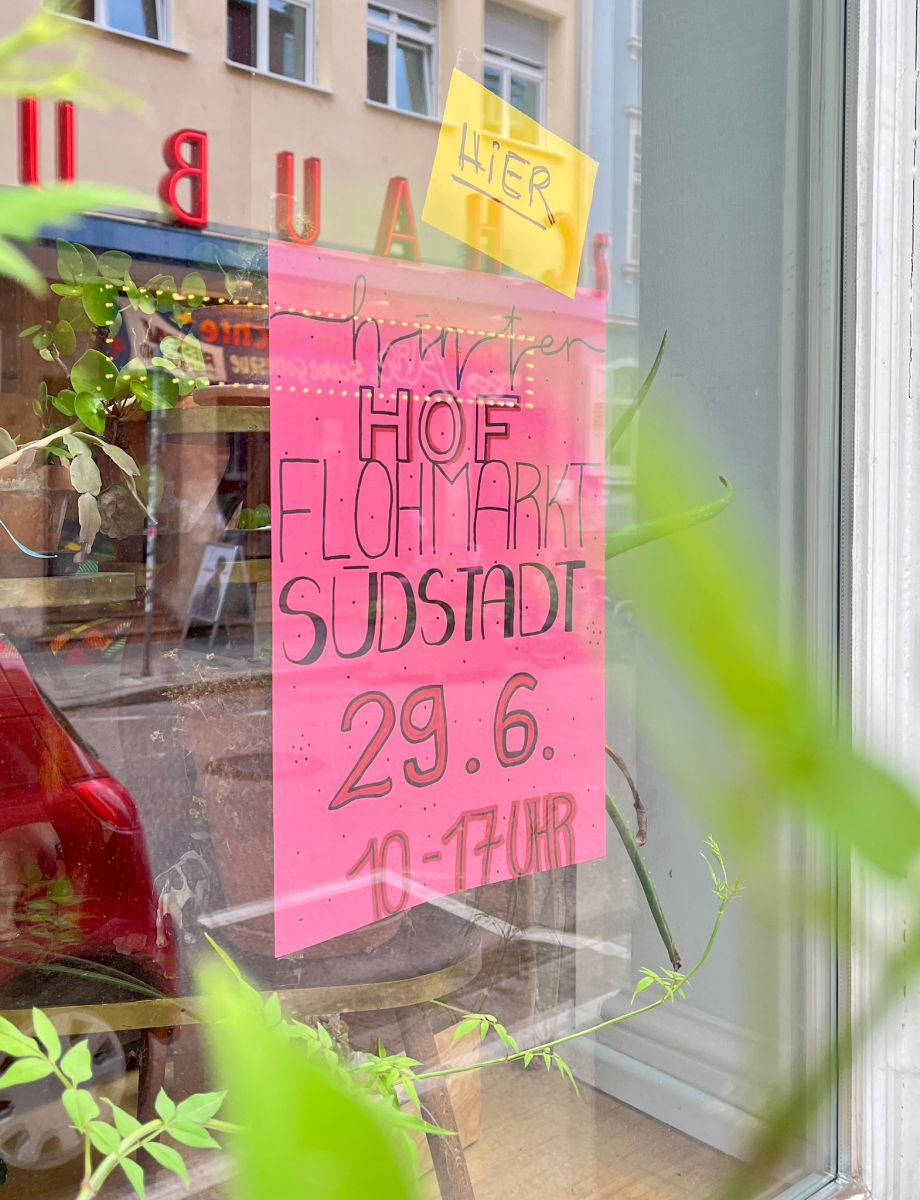 HiER
hinten
HOF
FLOHMARKT
SÜDSTADT
29.6.
10-17 UHR